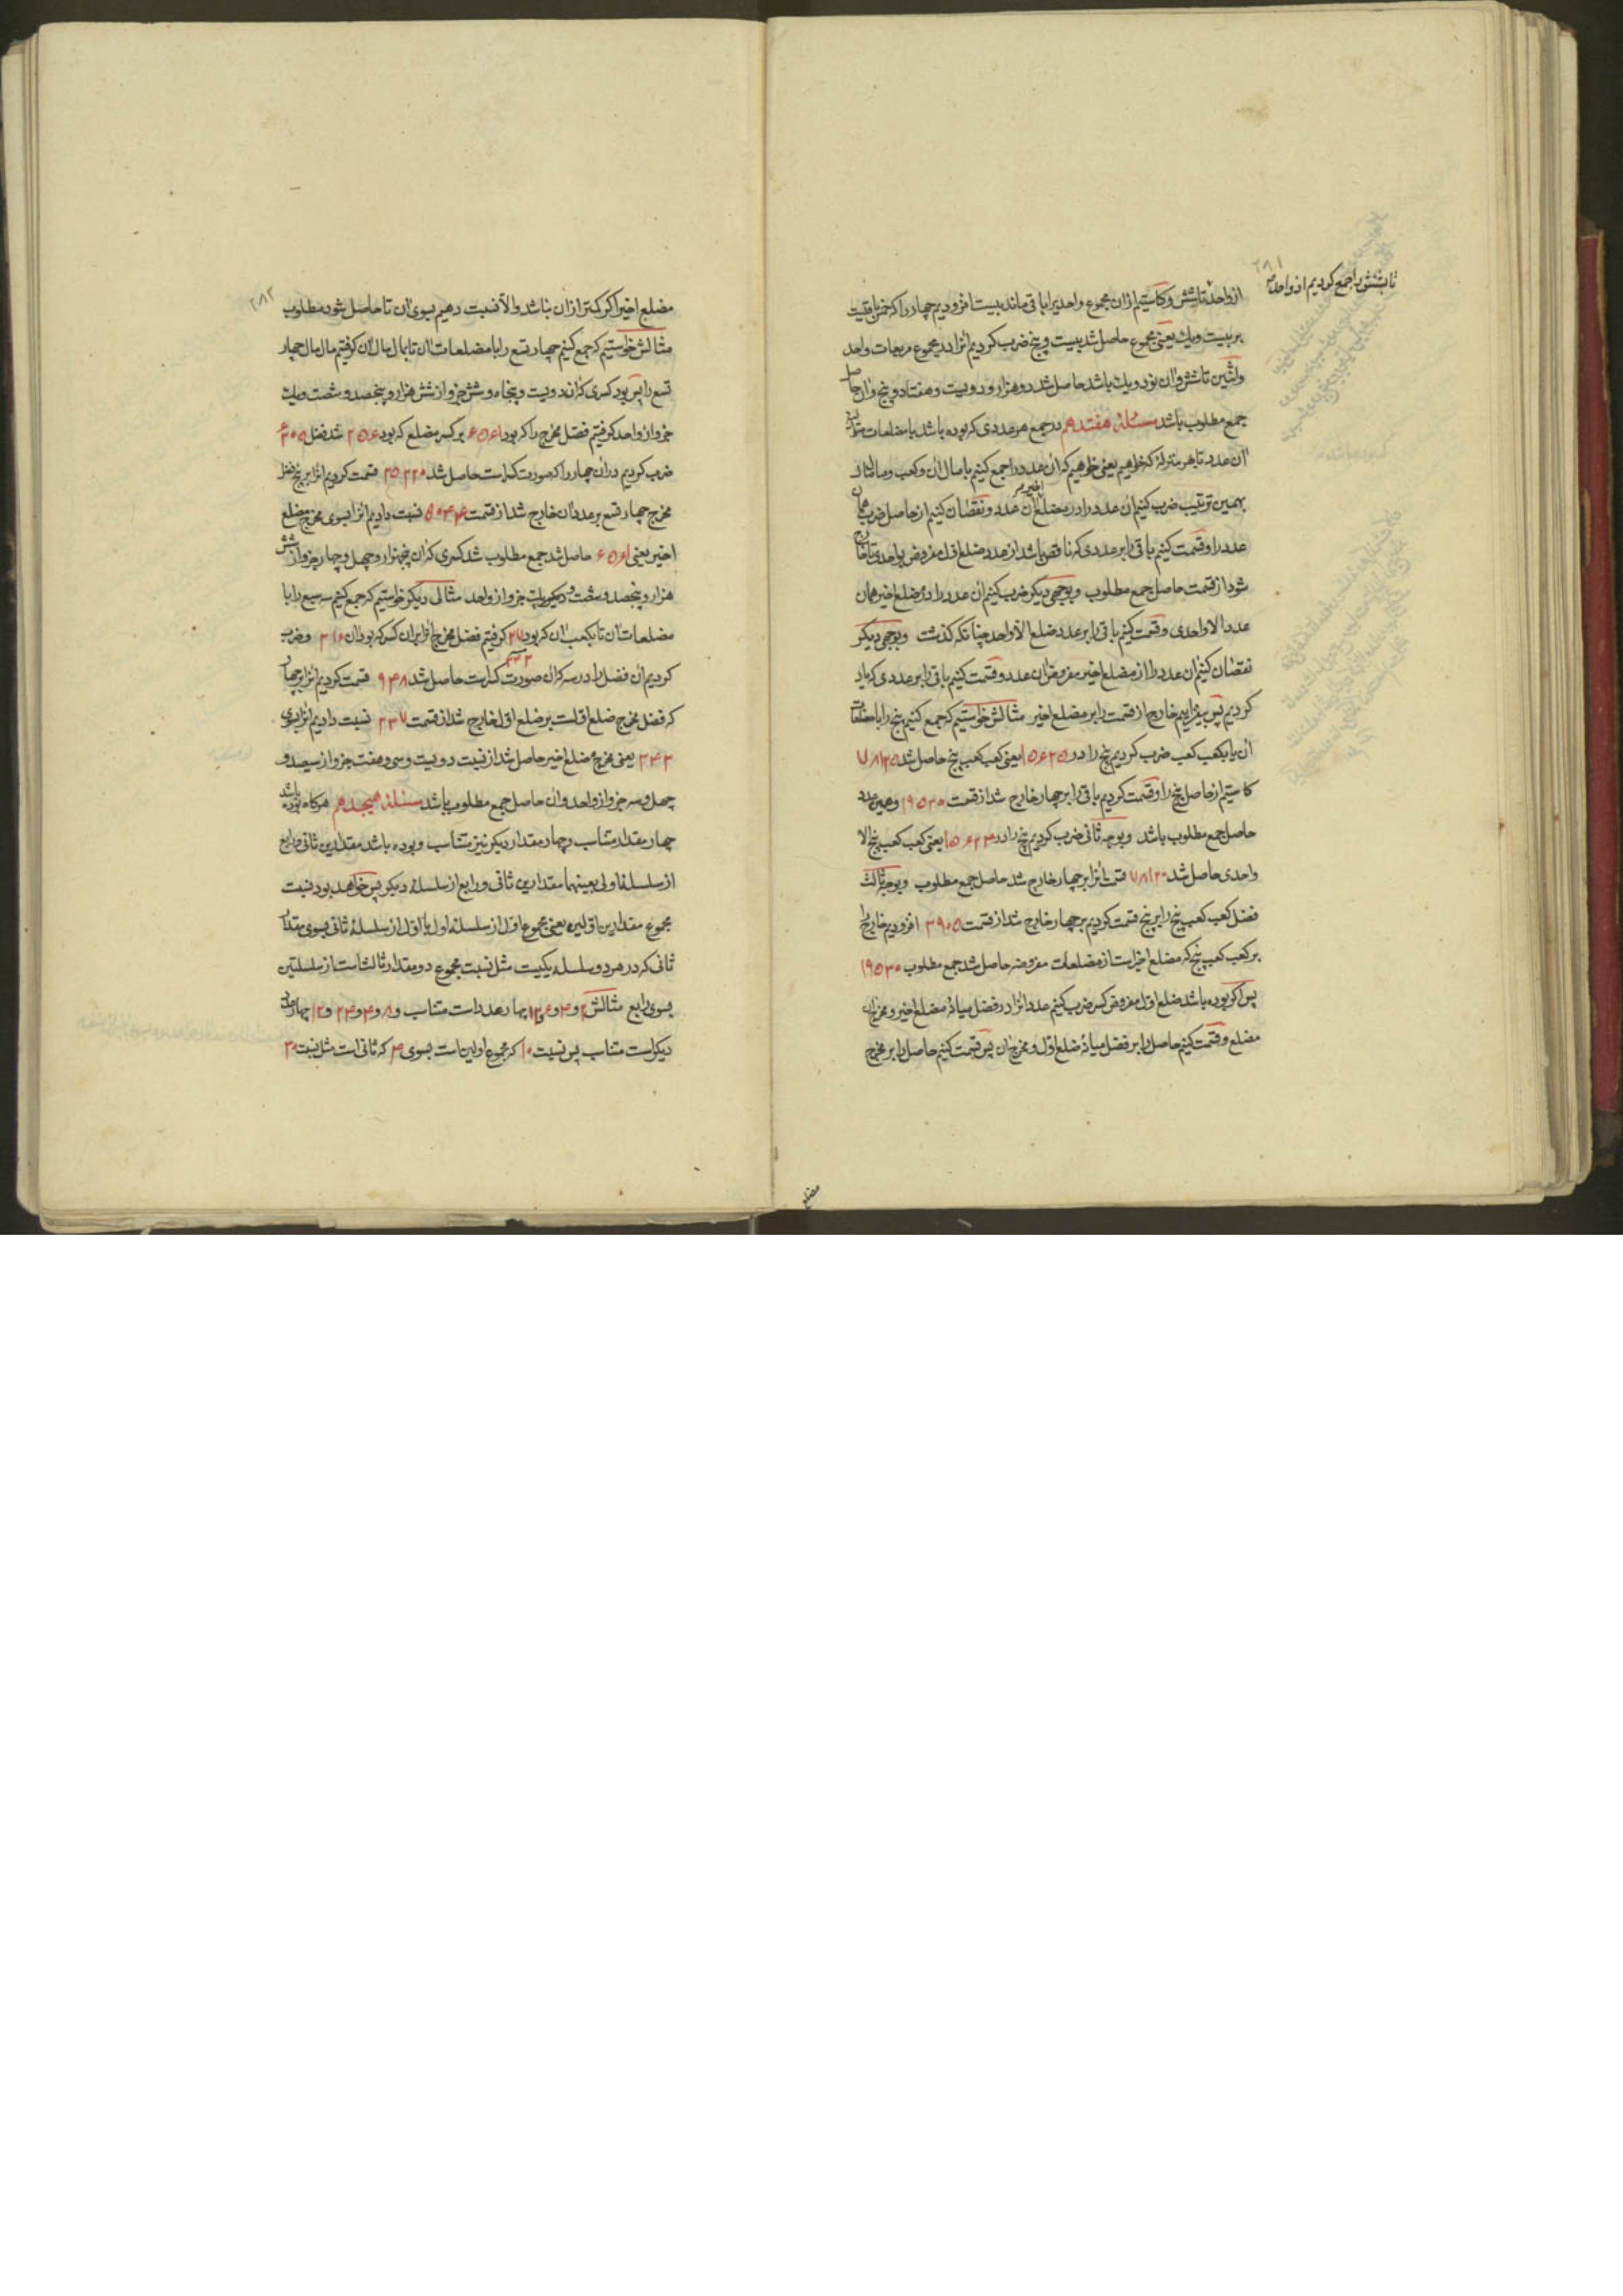 تا بشش را جمع کردیم از واحد
از واحد تا شش و کاستیم ازان مجموع واحد را باقی ماند بیست افزودیم چهار را که خمس باقیست
بر بیست و یک یعنی مجموع حاصل شد بیست و پنج ضرب کردیم انرا در مجموع مربعات واحد
واثنین تا شش و ان نود و یک باشد حاصل شد دو هزار و دویست و هفتاد و پنج و ان حاصل
جمع مطلوب باشد مسئلهٔ هفتدهم در جمع هر عددی که بوده باشد با مضلعات متوالیه
ان عدد تا هر منزلة که خواهیم یعنی خواهیم که ان عدد را جمع کنیم با مال ان و کعب و مال مال ان
بهمین ترتیب ضرب کنیم ان عدد را در مضلع اخیر ان عدد و نقصان کنیم از حاصل ضرب همان
عدد را و قسمت کنیم باقی را بر عددی که ناقص باشد از عدد ضلع اول مفروض بواحدی تا خارج
شود از قسمت حاصل جمع مطلوب و بوجهی دیکر ضرب کنیم ان عدد را در مضلع اخیر همان
عدد الا واحدی و قسمت کنیم باقی را بر عدد ضلع الا واحد چنانکه کذشت و بوجهی دیکر
نقصان کنیم ان عدد را از مضلع اخیر مفروض ان عدد و قسمت کنیم باقی را بر عددی که یاد
کردیم پس بیفزاییم خارج از قسمت را بر مضلع اخیر مثالش خواستیم که جمع کنیم پنج را با مضلعات
ان با بکعب کعب ضرب کردیم پنج را در ۱۵۶۲۵ یعنی کعب کعب پنج حاصل شد ۷۸۱۲۵
کاستیم از حاصل پنج را و قسمت کردیم باقی را بر چهار خارج شد از قسمت ۱۹۵۳۰ و همین عدد
حاصل جمع مطلوب باشد و بوجه ثانی ضرب کردیم پنج را در ۱۵۶۲۴ یعنی کعب کعب پنج الا
واحدی حاصل شد ۷۸۱۲۰ قسمت انرا بر چهار خارج شد حاصل جمع مطلوب و بوجه ثالث
فضل کعب کعب پنج را بر پنج قسمت کردیم بر چهار خارج شد از قسمت ۳۹۰۵ افزودیم خارج را
بر کعب کعب پنج که مضلع اخیر است از مضلعات مفروضه حاصل شد جمع مطلوب ۱۹۵۳۰
پس اکر بوده باشد ضلع اول مفروض کسر ضرب کنیم عدد انرا در فضل میانهٔ مضلع اخیر و مخرج ان
مضلع و قسمت کنیم حاصل را بر فضل میانهٔ ضلع اول و مخرج ان پس قسمت کنیم حاصل را بر مخرج
مضلع
۲۸۲
مضلع اخیر اکر کمتر ازان نباشد والا نسبت دهیم بسوی ان تا حاصل شود مطلوب
مثالش خواستیم که جمع کنیم چهار تسع را با مضلعات ان تا بمال مال ان کرفتیم مال مال چهار
تسع را پس بود کسری که ان دویست و پنجاه و شش جزو از شش هزار و پنجصد و شصت و یک
جزو از واحد کرفتیم فضل مخرج را که بود ۶۵۶۱ بر کسر مضلع که بود ۲۵۶ شد فضل ۶۳۰۵
ضرب کردیم دران چهار را که صورت کسر است حاصل شد ۲۵۲۲۰ قسمت کردیم انرا بر پنج فضل
مخرج چهار تسع بر عدد ان خارج شد از قسمت ۵۰۴۴ نسبت دادیم انرا بسوی مخرج مضلع
اخیر یعنی ۶۵۶۱ حاصل شد جمع مطلوب شد کسری که ان پنجهزار و چهل و چهار جزو از شش
هزار و پنجصد و شصت و یک جزو از واحد مثالی دیکر خواستیم که جمع کنیم سه سبع را با
مضلعات ان تا بکعب ان که بود ۲۷ کرفتیم فضل مخرج انرا بر ان کسر که بود ان ۳۱۶ و ضرب
۳۴۳
کردیم ان فضل را در سه که ان صورت کسر است حاصل شد ۹۴۸ قسمت کردیم انرا بر چهار
که فضل مخرج ضلع اول است بر ضلع اول خارج شد از قسمت ۲۳۷ نسبت دادیم انرا بسوی
۳۴۳ یعنی مخرج مضلع اخیر حاصل شد از نسبت دویست و سی و هفت جزو از سیصد و
چهل و سه جزو از واحد و ان حاصل جمع مطلوب باشد مسئلهٔ هیجدهم هرکاه بوده باشد
چهار مقدار متناسب و چهار مقدار دیکر نیز متناسب و بوده باشد مقدارین ثانی و رابع
از سلسلهٔ اولی بعینهما مقدارین ثانی و رابع از سلسلهٔ دیکر پس خواهد بود نسبت
مجموع مقدارین اولین یعنی مجموع اول از سلسلهٔ اول با اول از سلسلهٔ ثانی بسوی مقدار
ثانی که در هر دو سلسله یکیست مثل نسبت مجموع دو مقدار ثالث است از سلسلتین
بسوی رابع مثالش ۲ و ۴ و ۶ و ۱۲ چهار عدد است متناسب و ۸ و ۴ و ۲۴ و ۱۲ چهار عدد
دیکر است متناسب پس نسبت ۱۰ که مجموع اولین است بسوی ۴ که ثانی است مثل نسبت ۳۰